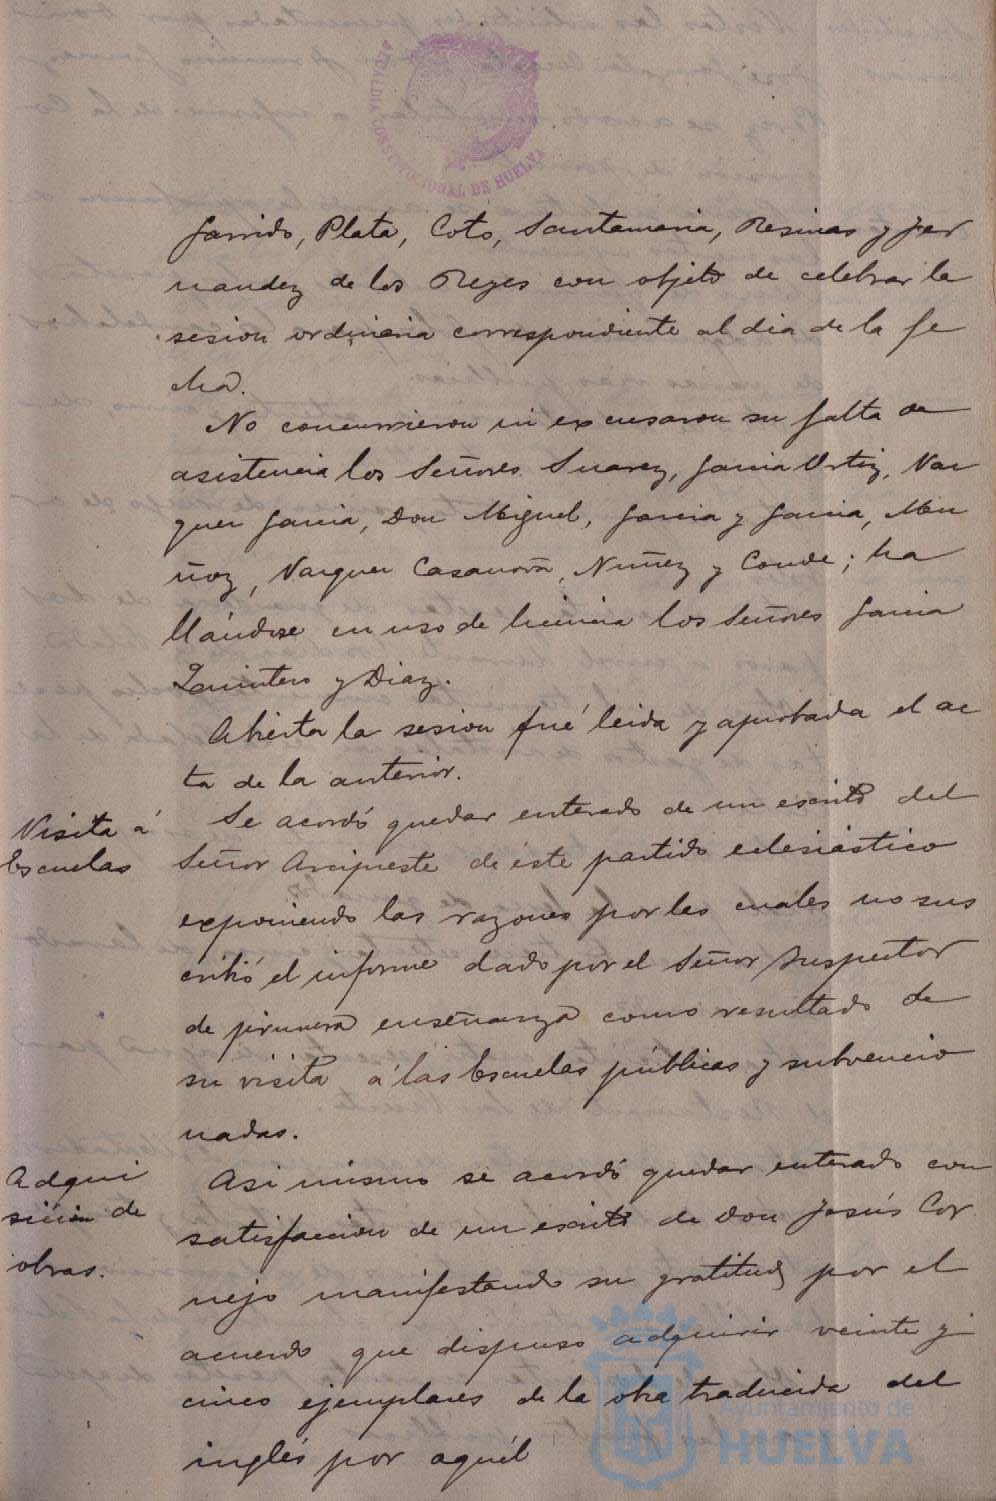 ALCALDIA CONSTITUCIONAL DE HUELVA
Garrido, Plata, Coto, Santamaria, Resinas y Fer
nandez de los Reyes con objeto de celebrar la
sesion ordinaria correspondiente al dia de la fe
cha.
No concurrieron ni excusaron su falta de
asistencia los Señores Suarez, Garcia Ortiz, Vaz
quez Garcia, Don Miguel, Garcia y Garcia, Mu
ñoz, Vazquez Casanova, Nuñez y Conde; ha
llándose en uso de licencia los Señores Garcia
Quintero y Diaz.
Abierta la sesion fué leida y aprobada el ac
ta de la anterior.
Visita á
Escuelas
Se acordó quedar enterado de un escrito del
Señor Arcipreste de éste partido eclesiástico
exponiendo las razones por las cuales no sus
cribió el informe dado por el Señor Inspector
de primera enseñanza como resultado de
su visita á las Escuelas públicas y subvencio
nadas.
Adqui
sición de
obras.
Asi mismo se acordó quedar enterado con
satisfaccion de un escrito de Don Jesús Cor
nejo manifestando su gratitud por el
acuerdo que dispuso adquirir veinte y
cinco ejemplares de la obra traducida del
inglés por aquél
Ayuntamiento de
HUELVA